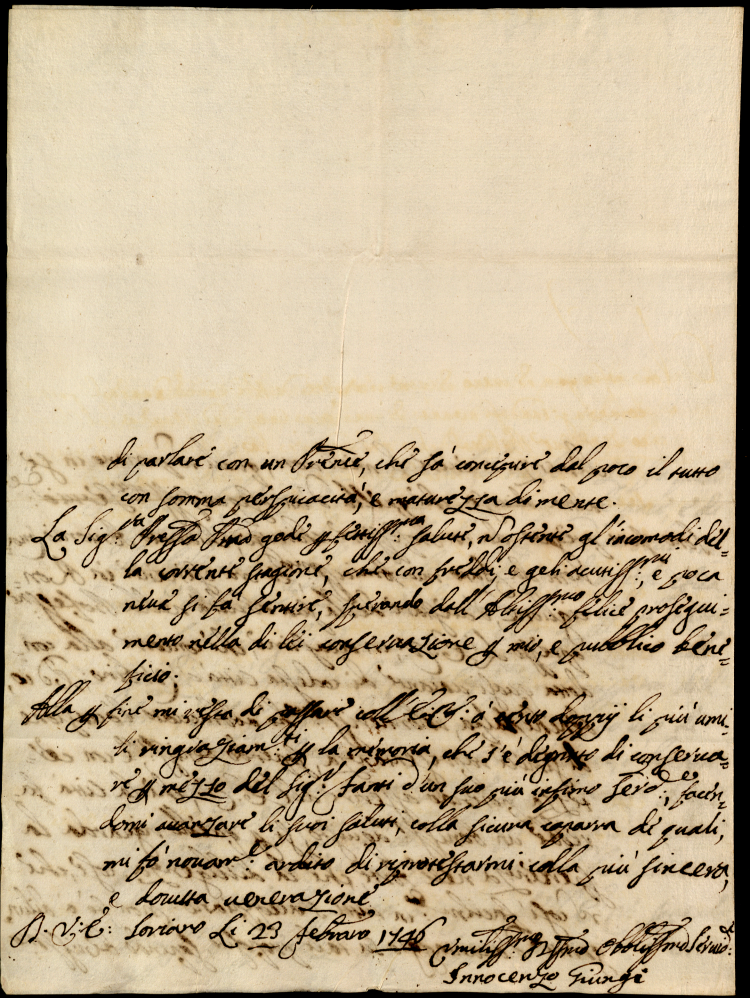 di parlare con un Prēnte, che sà concepire dal poco il tutto
con somma perspicacità, e maturezza di mente.
La Sig.ra gode salute, gl'incomodi del=
la corrente stagione, che con freddi, e geli acutiss.mi, e poca
neve si fà sentire, sperando dall'Altiss.mo felice prosegui=
mento nella di lei conservazione p mio, e publico bene=
ficio.
Alla p fine mi resta di passare coll'E.V. li più umi=
li ringraziam.ti p la memoria, che s'è degnato di conserva=
re p mezzo del Sig.r Santi d'un suo più infimo Serv.re, facen=
domi avanzare li suoi saluti, colla sicura caparra de quali,
mi fò novam.e ardito di riprotestarmi colla più sincera,
e dovuta venerazione
D. V. E. Soriano Li 23 Febraro 1746
Umiliss.mo Obbligmo Servid.e
Innocenzo Giungi